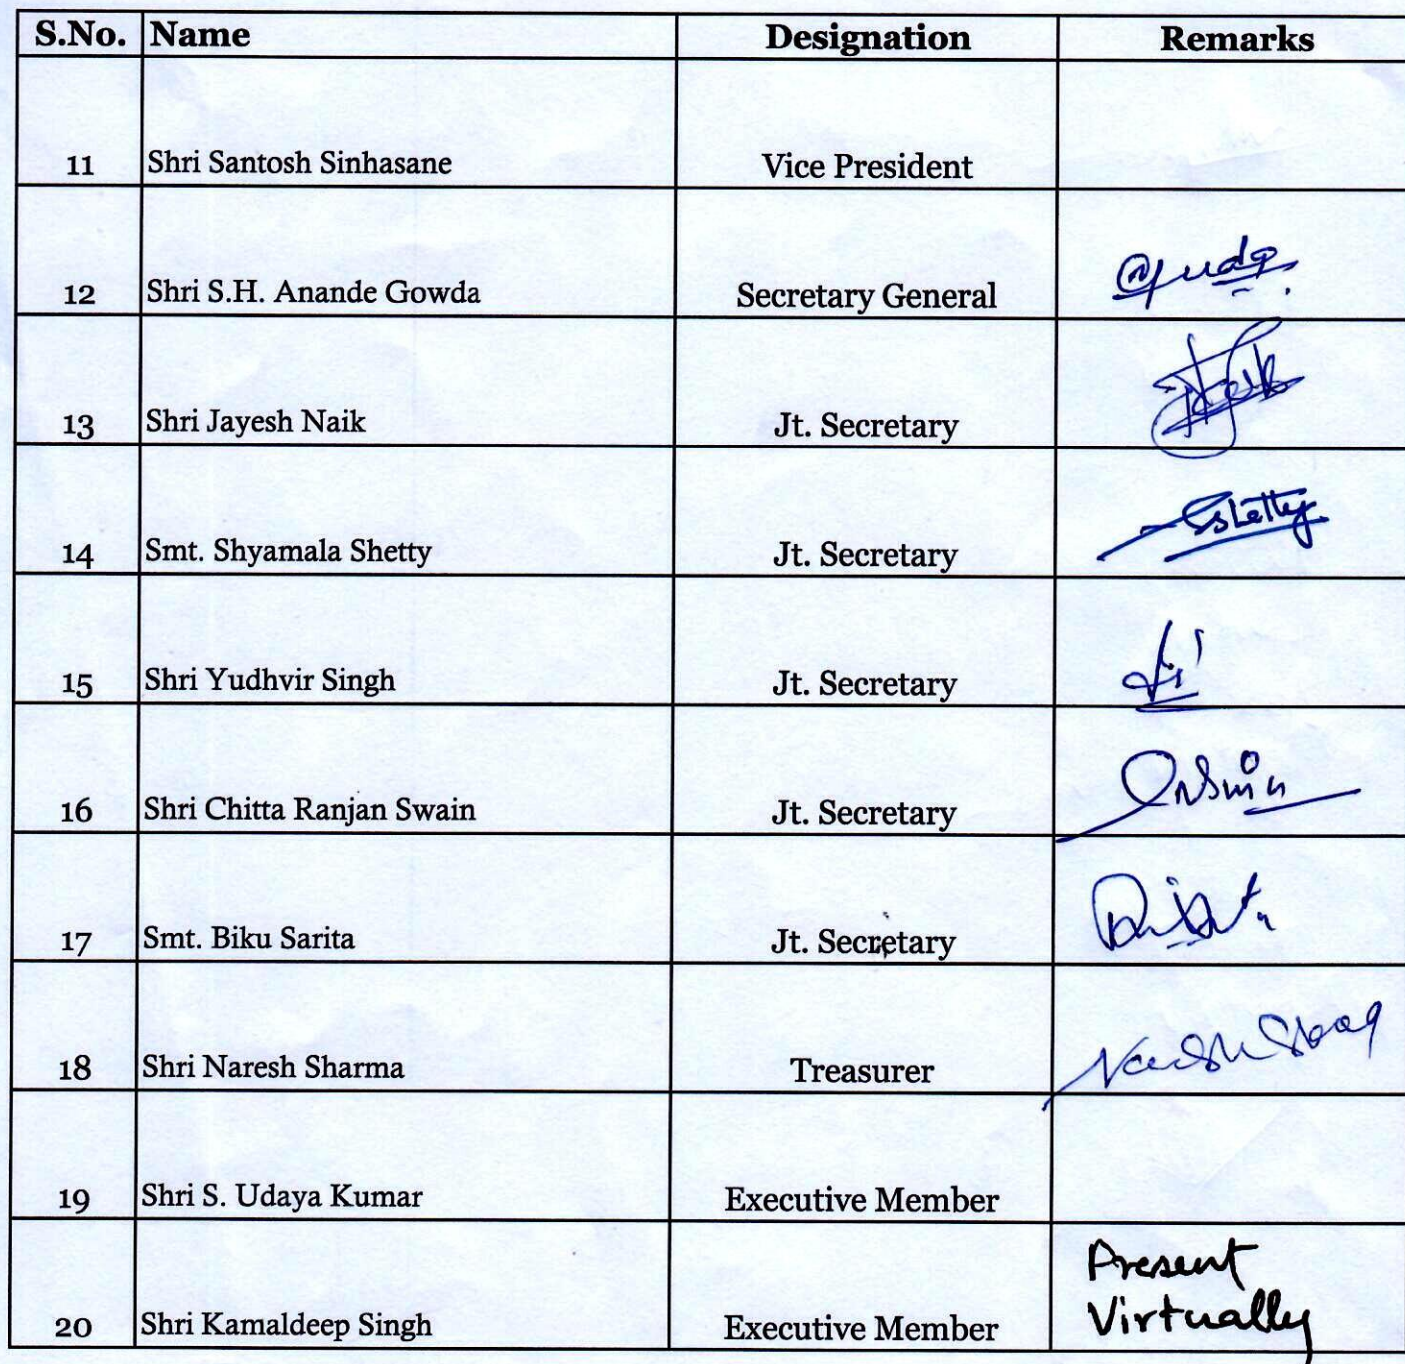 S.No. Name Designation Remarks
11 Shri Santosh Sinhasane Vice President
12 Shri S.H. Anande Gowda Secretary General
13 Shri Jayesh Naik Jt. Secretary
14 Smt. Shyamala Shetty Jt. Secretary SShetty
15 Shri Yudhvir Singh Jt. Secretary
16 Shri Chitta Ranjan Swain Jt. Secretary
17 Smt. Biku Sarita Jt. Secretary
18 Shri Naresh Sharma Treasurer
19 Shri S. Udaya Kumar Executive Member
20 Shri Kamaldeep Singh Executive Member Present
Virtually